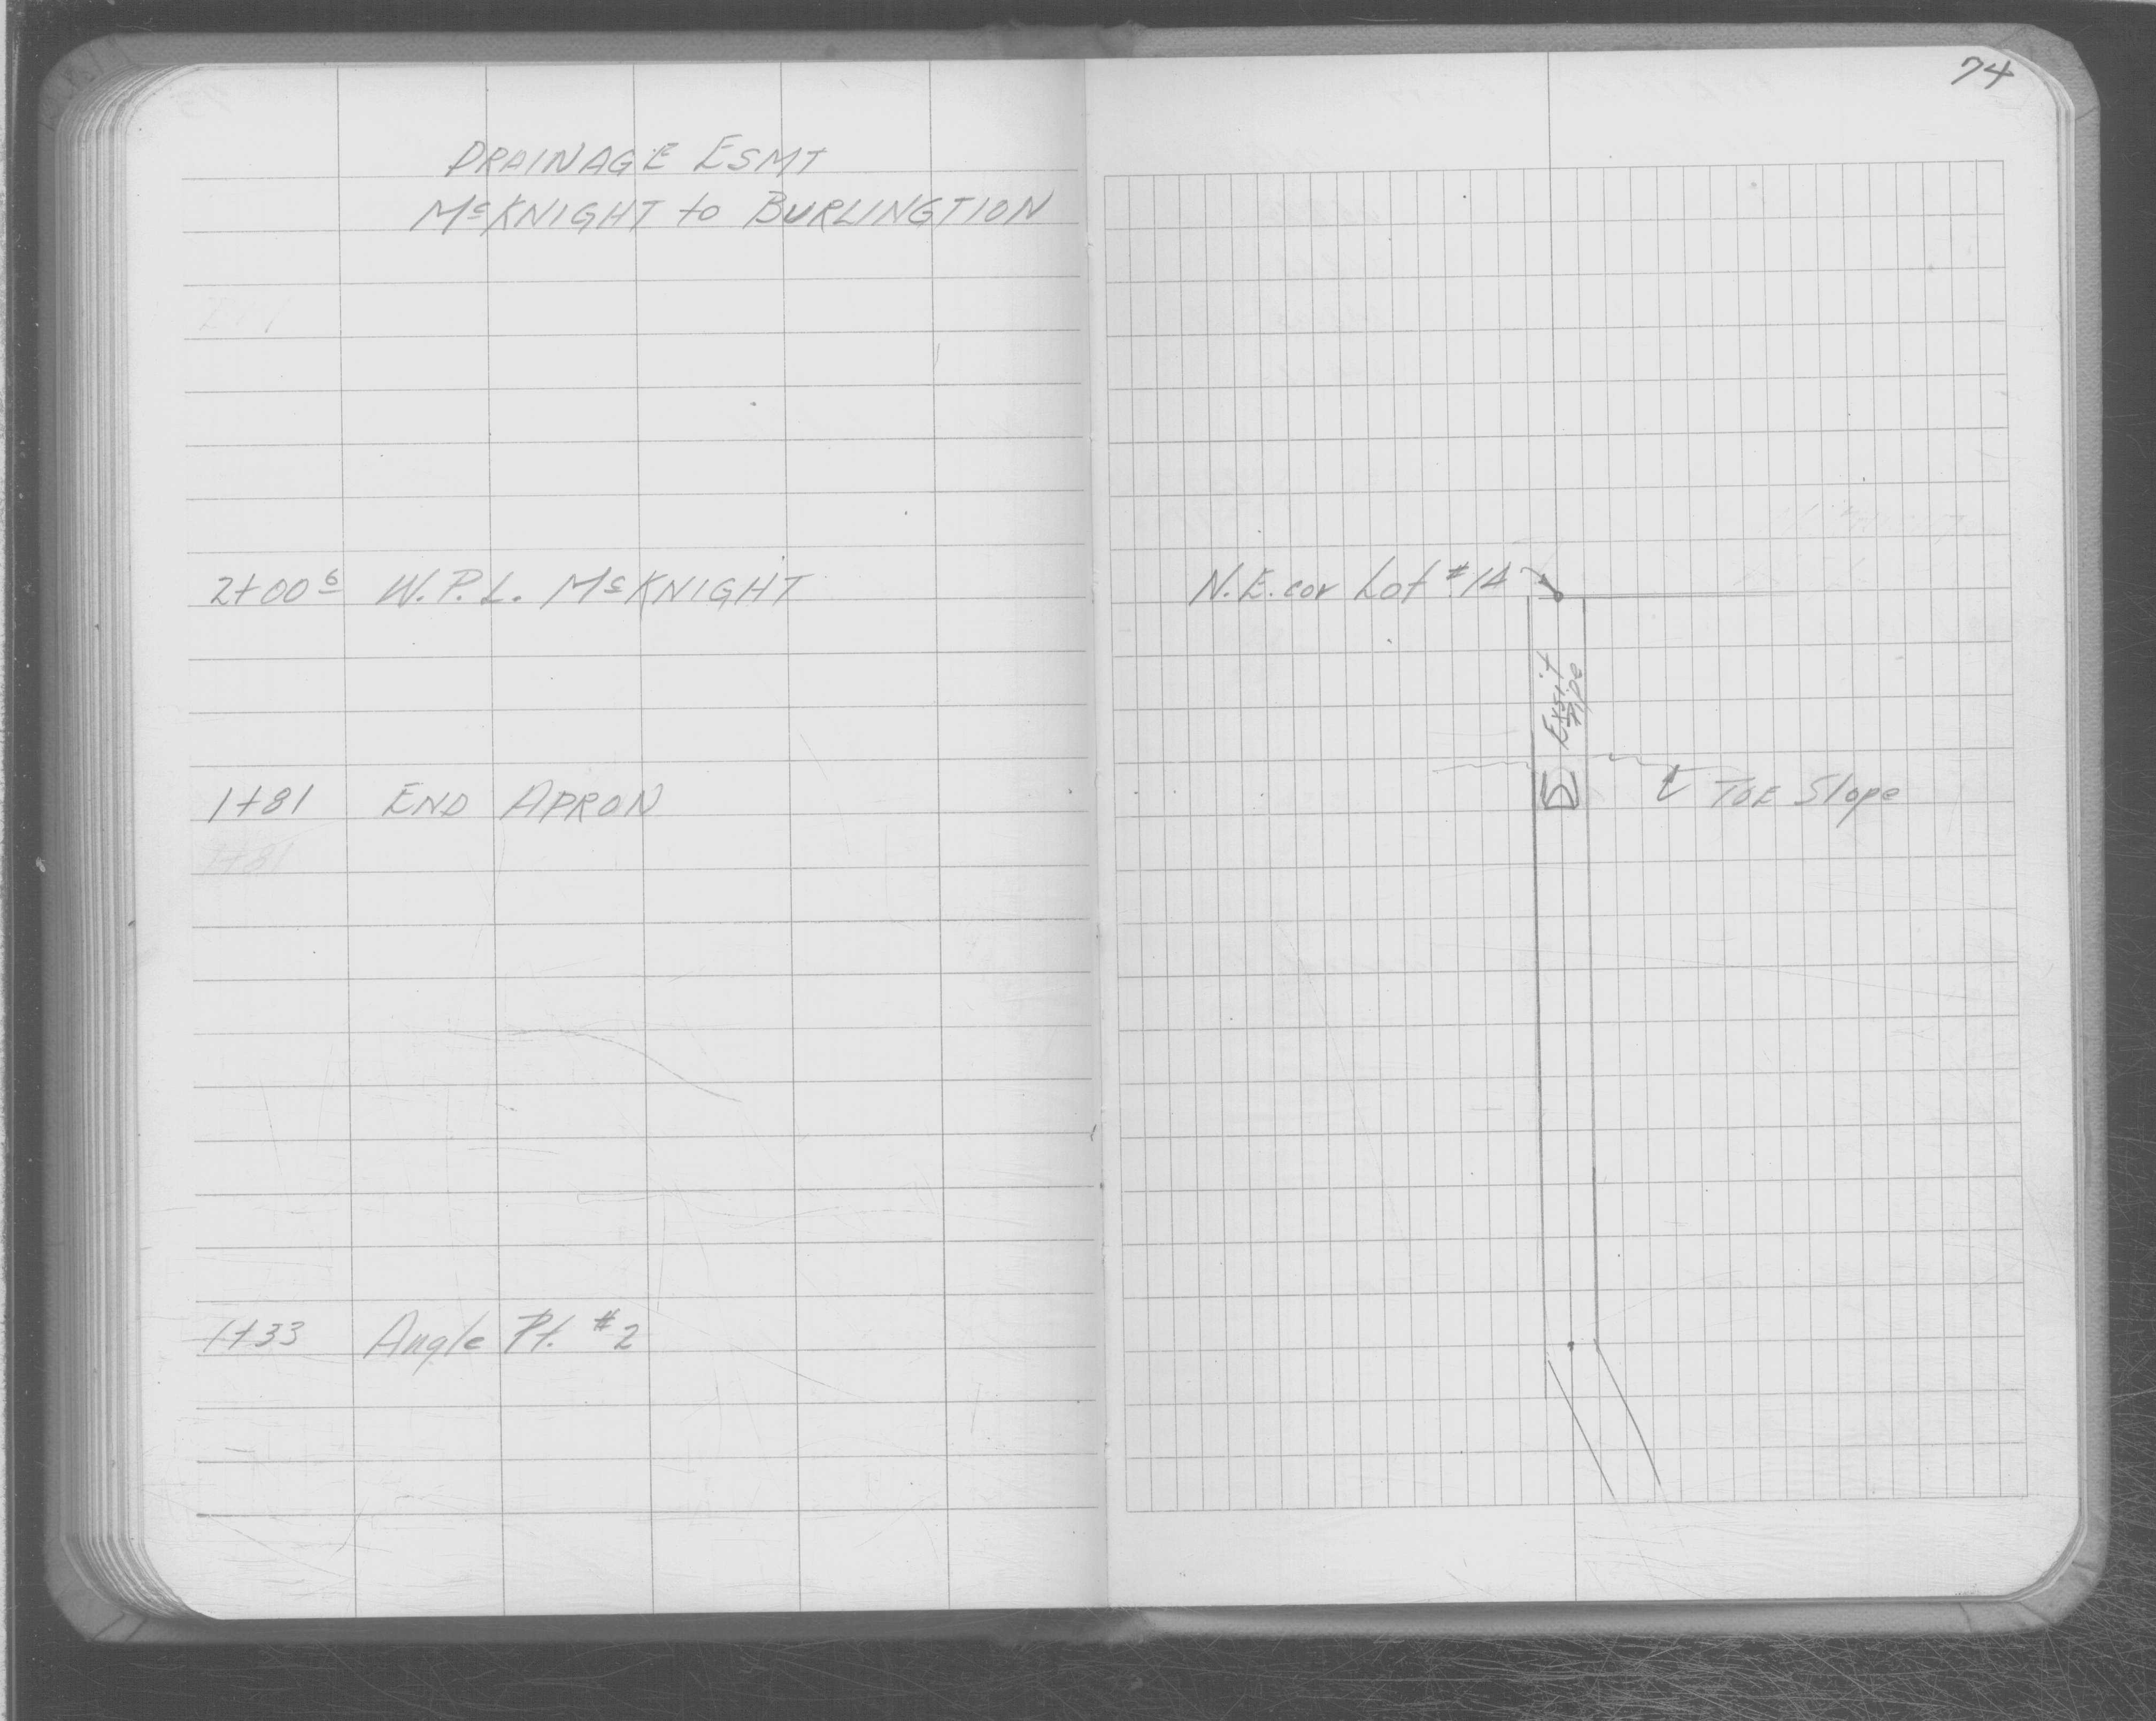 74
DRAINAGE ESMT
McKNIGHT to BURLINGTION
2+00 6 W.P.L. McKNIGHT
N.E. cor Lot #14
Exsit
Pipe
1+81 END APRON
TOE Slope
1+81
1+33 Angle Pt. #2